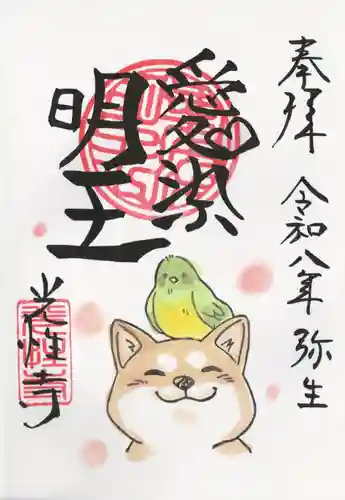 奉拝
令和八年弥生
愛染
明王
光輝寺